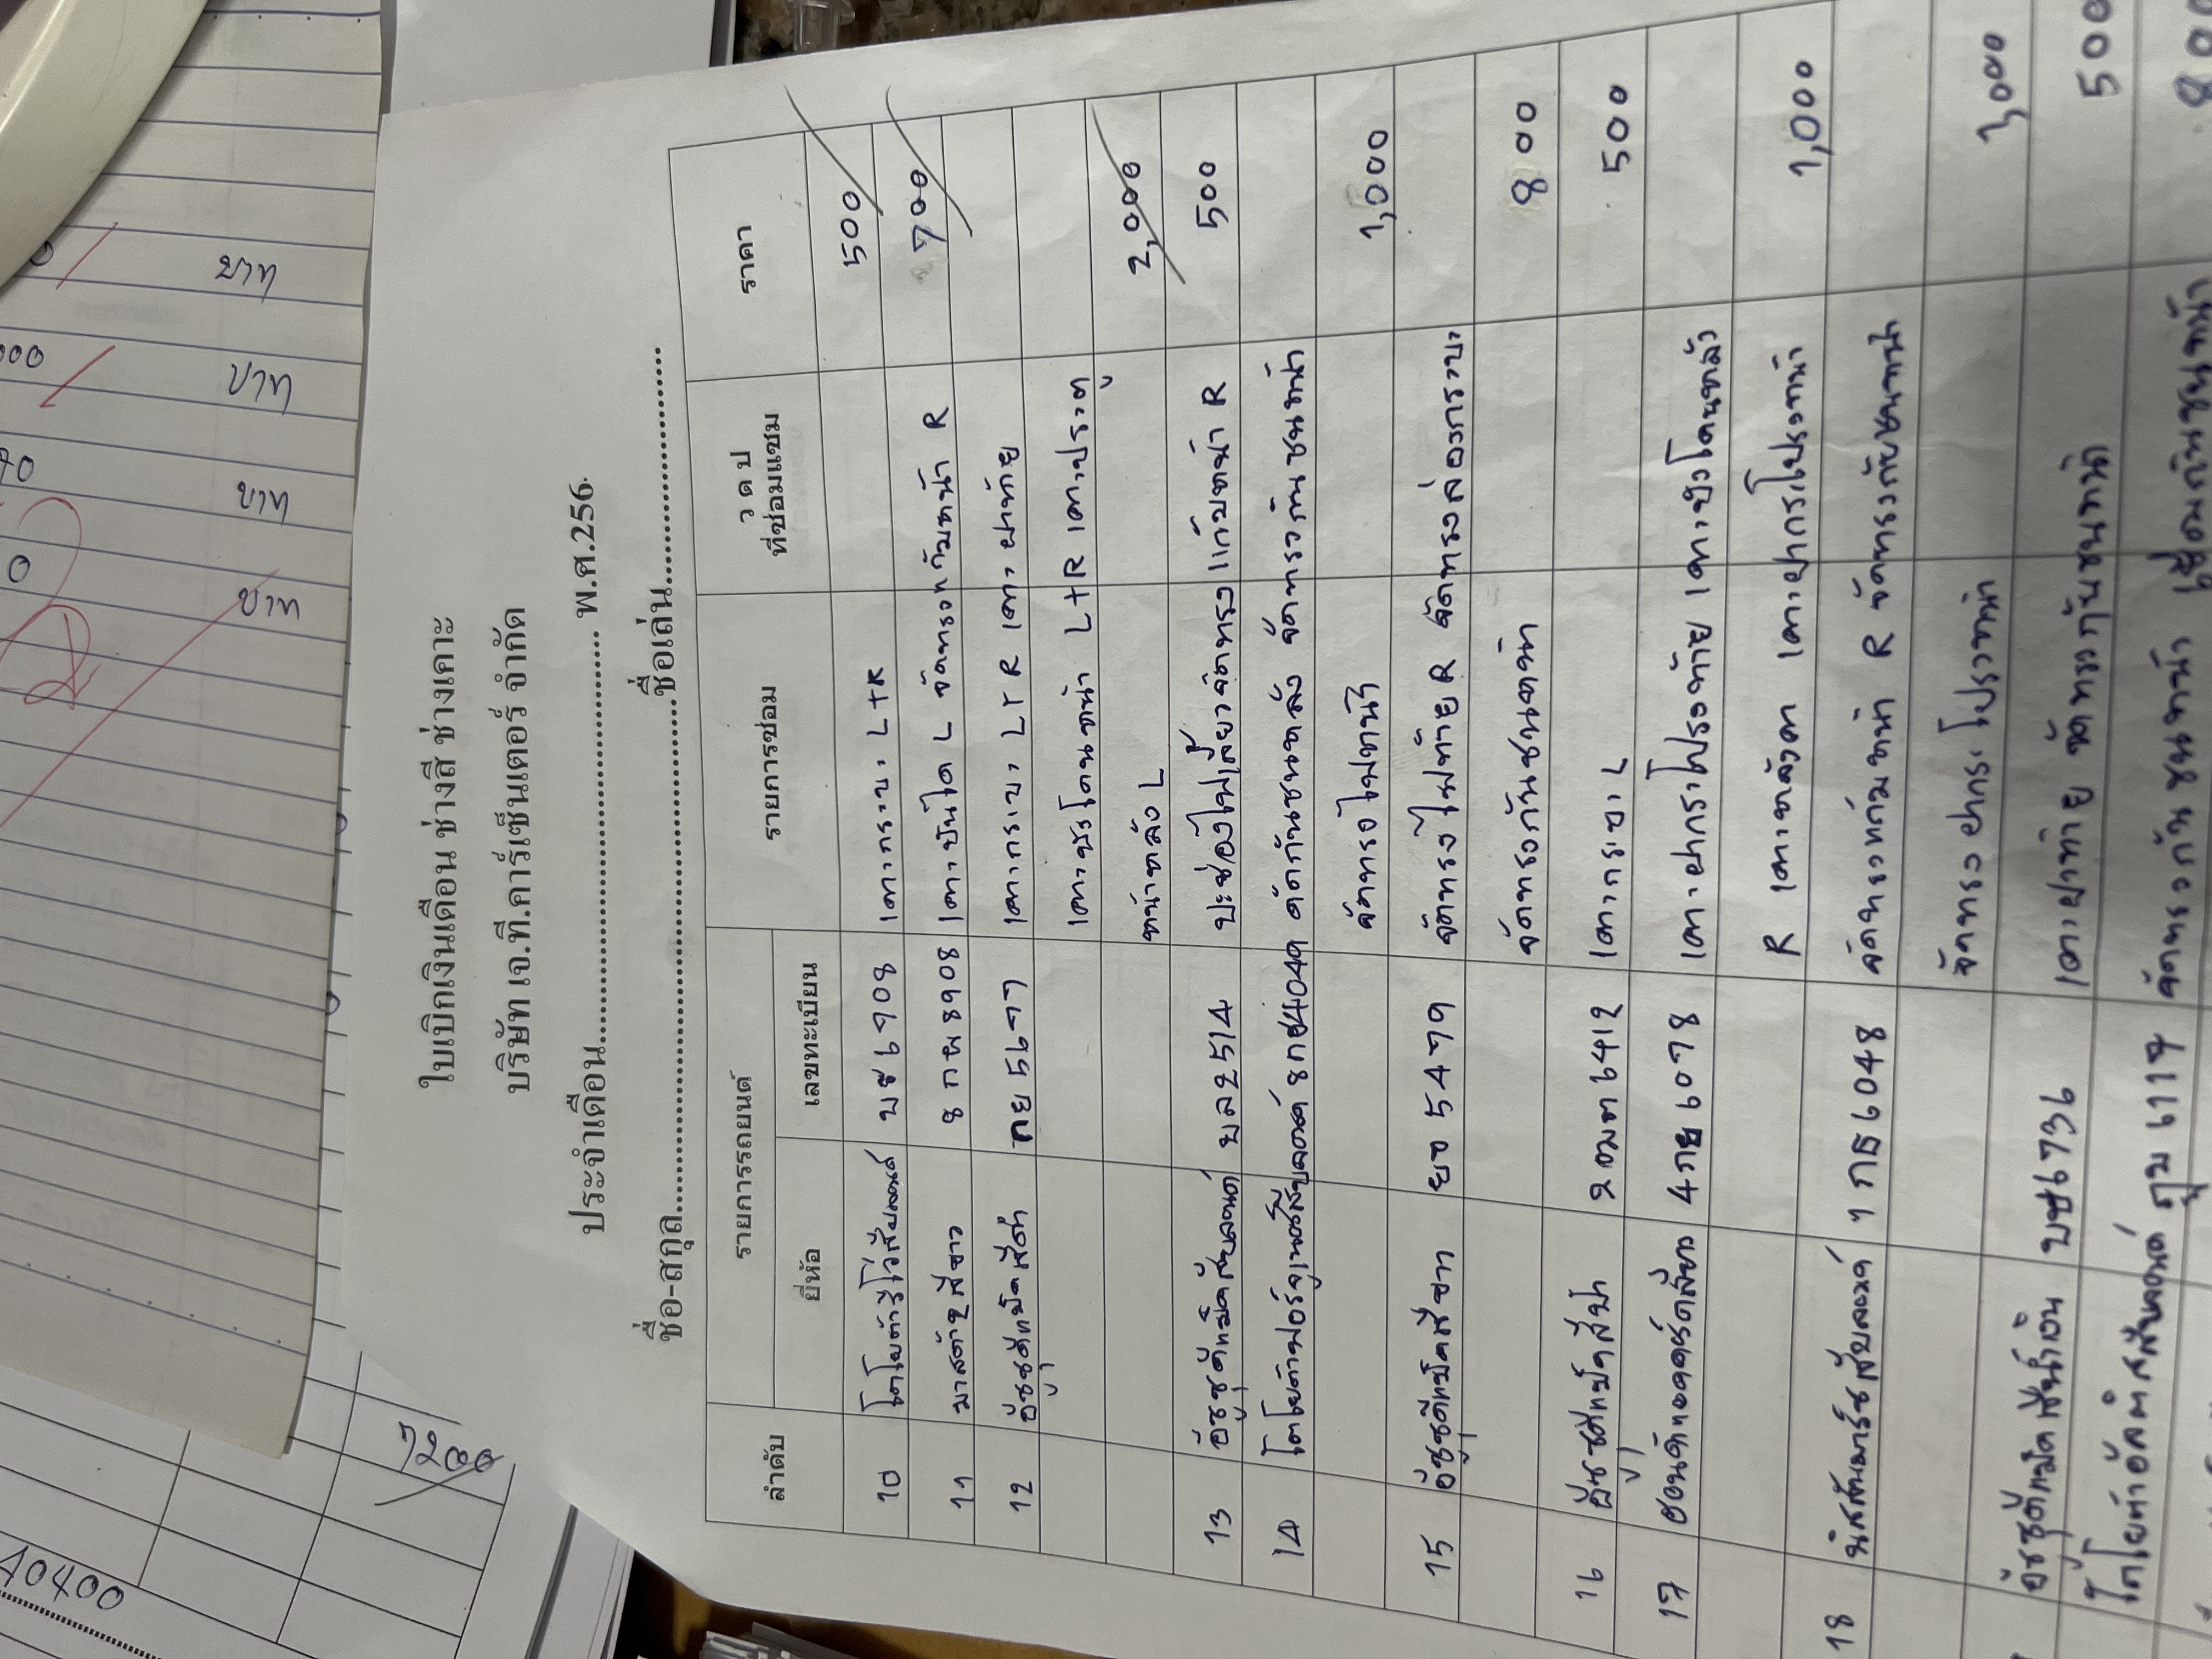 ใบเบิกเงินเดือน ช่างสี ช่างเคาะ
บริษัท เจ.ที.คาร์เซ็นเตอร์ จำกัด
ประจำเดือน.................................................. พ.ศ.256.
ชื่อ-สกุล..................................................ชื่อเล่น..............................
ลำดับ รายการรถยนต์ รายการซ่อม ว ด ป ที่ซ่อมแซม ราคา
ยี่ห้อ เลขทะเบียน
10 โตโยต้ารีโว่สีบลอนด์ บช 6908 เคาะกระบะ L+R 500
11 มาสด้า2สีขาว 8 กผ 8908 เคาะบันได L จัดทรงหน้า R 700
12 อีซูซุดีแม็คสีดำ กย 5677 เคาะกระบะ L+R เคาะฝาท้าย
เคาะบังโคลนหน้า L+R เคาะประตู
หน้าหลัง L 2,000
13 อีซูซุดีแม็คสีบลอนด์ บล 2514 ปะช่องไฟเลี้ยวจัดทรงแก้มหน้า R 500
14 โตโยต้าฟอร์จูนเนอร์สีบลอนด์ 8กฮ4049 ดัดกันชนหลัง จัดทรงกันชนหน้า
จัดทรงไฟหน้า 1,000
15 อีซูซุดีแม็คสีขาว ยจ 5479 จัดทรงไฟท้าย R จัดทรงล่องกระบะ
จัดทรงกันชนหน้า 800
16 อีซูซุดีแม็คสีฟ้า 2ฒฅ6412 เคาะกระบะ L 500
17 ฮอนด้าแอคคอร์ดสีขาว 4กย 6078 เคาะฝากระโปรงท้าย เคาะบังโคลนหลัง
R เคาะหลังคา เคาะฝากระโปรงหน้า 1,000
18 นิสสันมาร์ชสีบลอนด์ 1 กธ 6048 จัดทรงแก้มหน้า R จัดทรงกันชนหน้า
จัดทรงฝากระโปรงหน้า 1,000
อีซูซุดีแม็คสีน้ำเงิน บช6736 เคาะฝาท้าย จัดทรงกันชนหน้า 500
โตโยต้าอัลติสสีบลอนด์ ฎบ 6117 จัดทรงกันชนหน้า เชื่อมกันชนหน้า 800
บาท
บาท
บาท
บาท
7200
40400